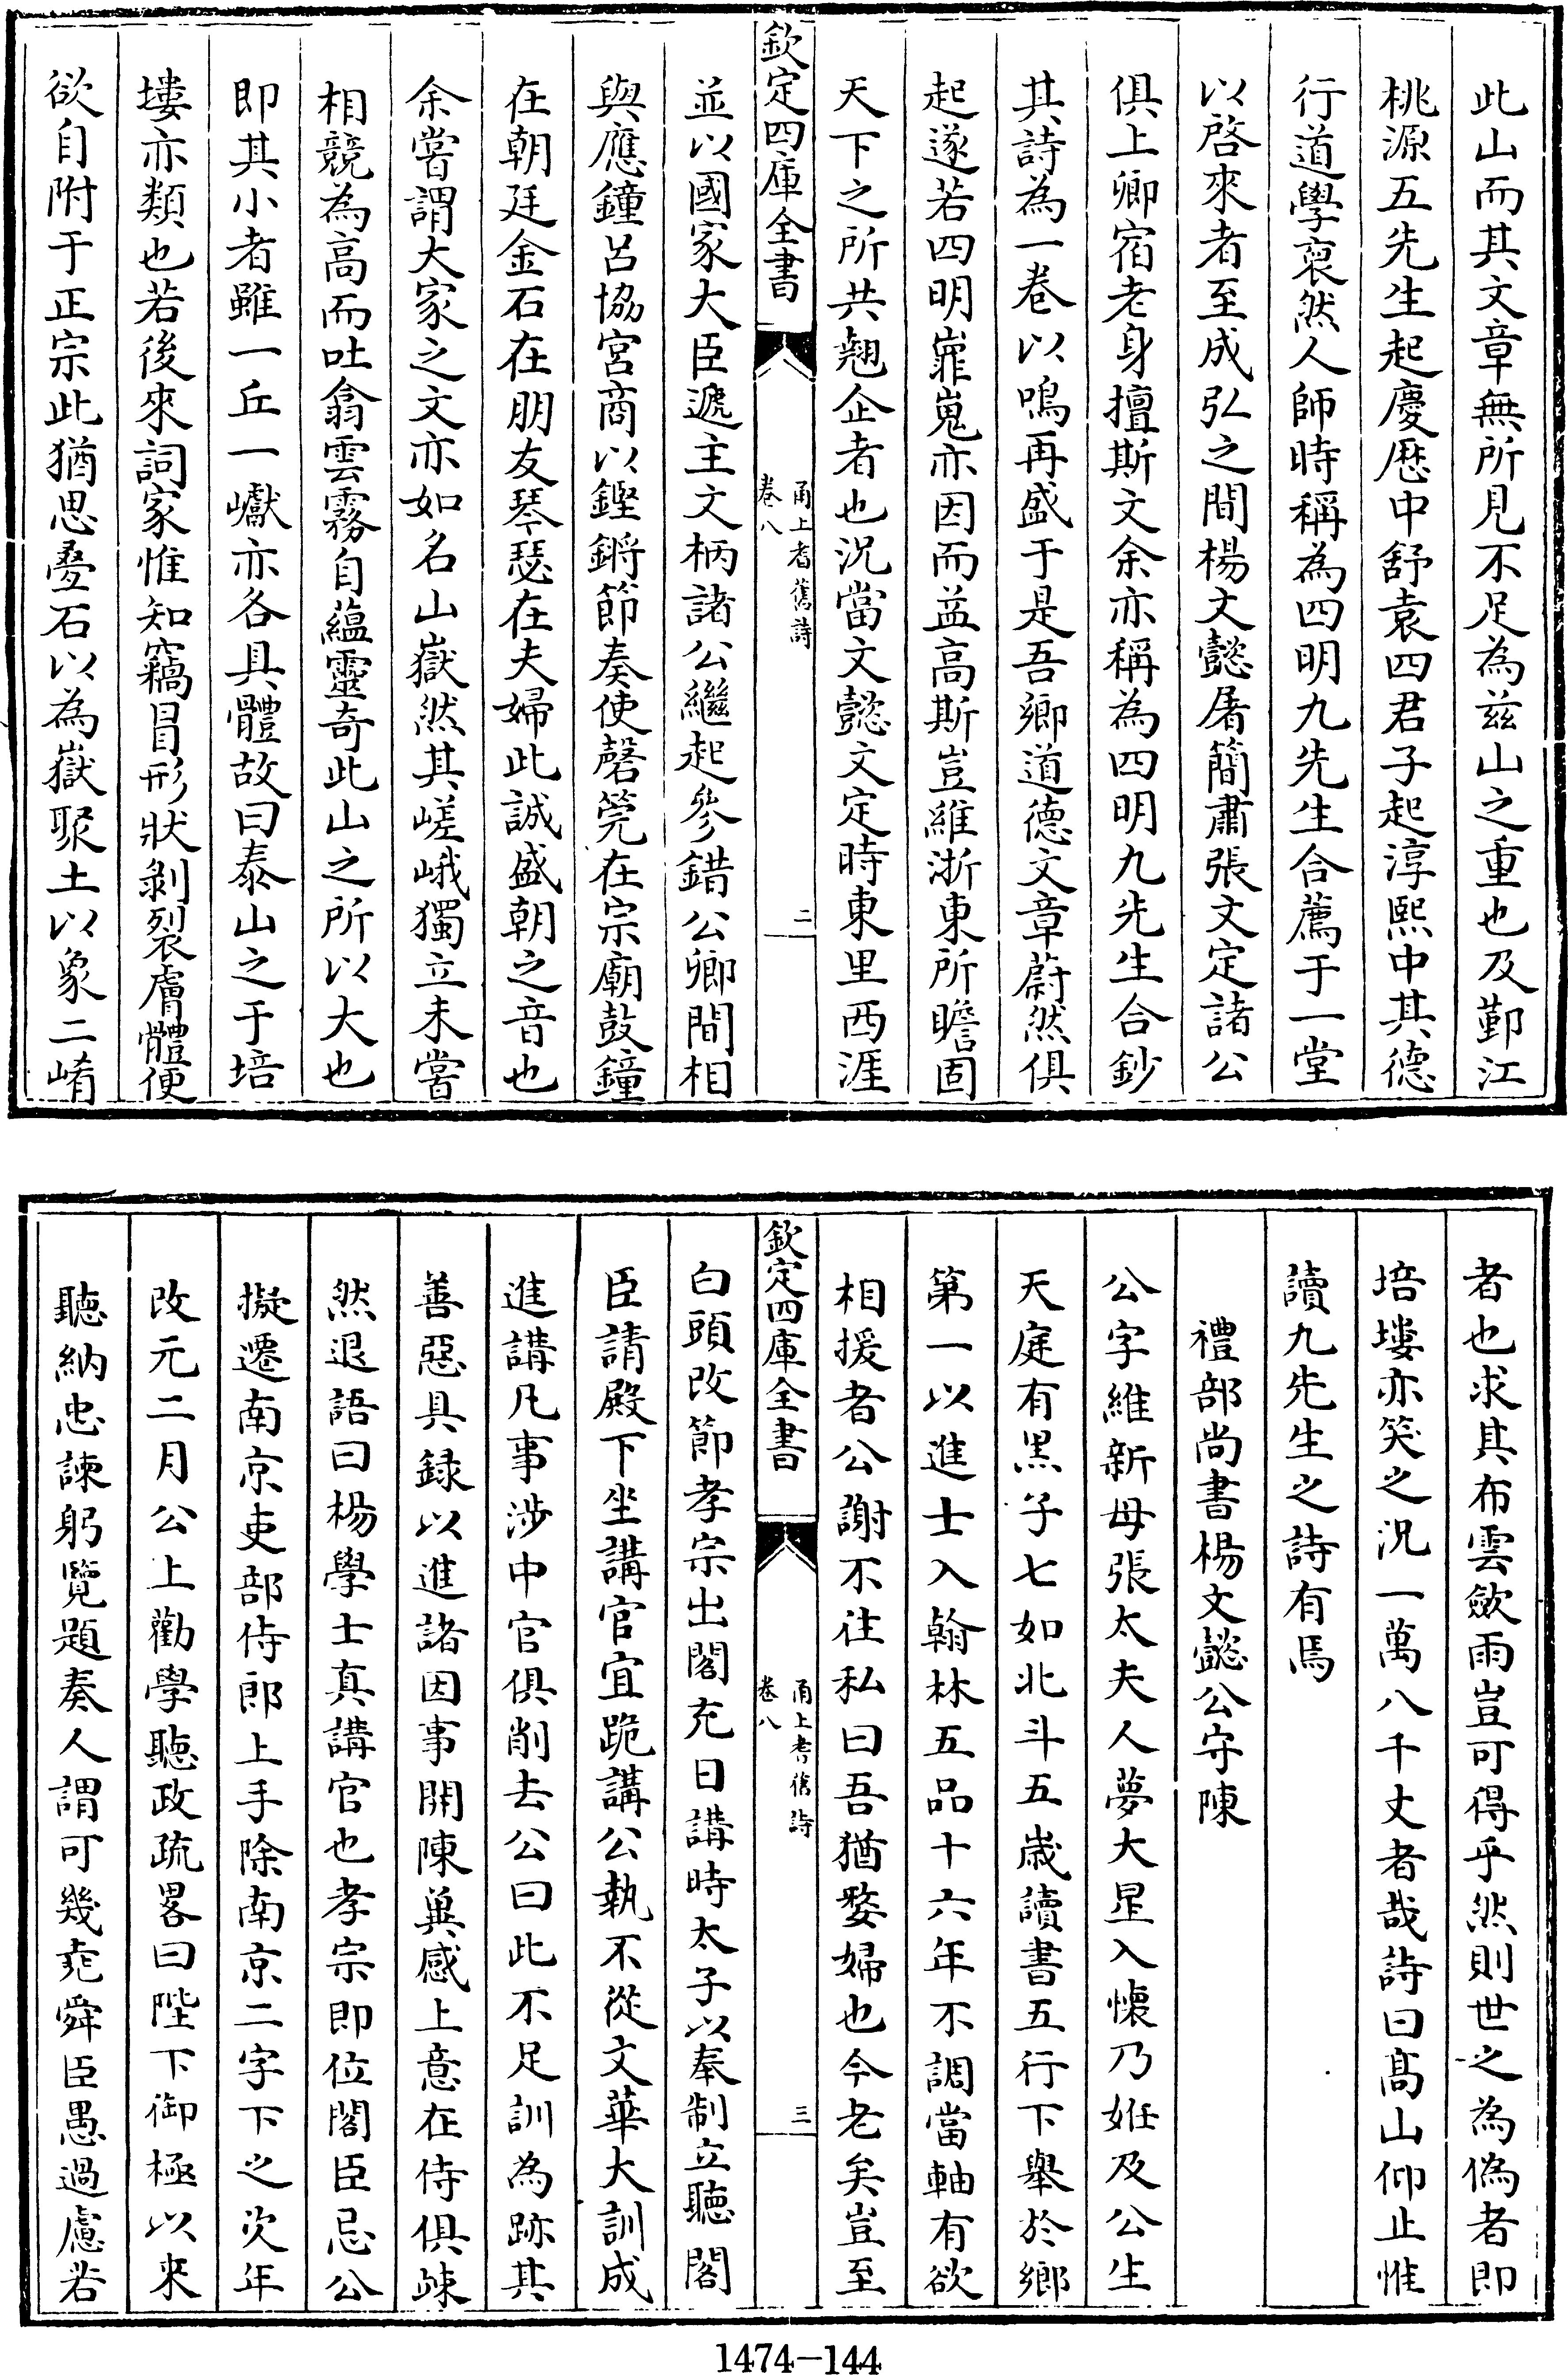 此山而其文章無所見不足為兹山之重也及鄞江
桃源五先生起慶厯中舒袁四君子起淳熙中其德
行道學裒然人師時稱為四明九先生合薦于一堂
以啓來者至成弘之間楊文懿屠簡肅張文定諸公
俱上卿宿老身擅斯文余亦稱為四明九先生合鈔
其詩為一卷以鳴再盛于是吾鄉道德文章蔚然俱
起遂若四明嶊嵬亦因而益高斯豈維浙東所瞻固
天下之所共翹企者也況當文懿文定時東里西涯
欽定四庫全書
甬上耆舊詩
卷八
二
並以國家大臣遞主文柄諸公繼起參錯公卿間相
與應鐘呂協宮商以鏗鏘節奏使磬筦在宗廟鼓鐘
在朝廷金石在朋友琴瑟在夫婦此誠盛朝之音也
余嘗謂大家之文亦如名山嶽然其嵯峨獨立未嘗
相競為高而吐翕雲霧自藴靈奇此山之所以大也
即其小者雖一丘一巘亦各具體故曰泰山之于培
塿亦類也若後來詞家惟知竊冒形狀剝裂膚體便
欲自附于正宗此猶思壘石以為嶽聚土以象二崤
者也求其布雲斂雨豈可得乎然則世之為偽者即
培塿亦笑之況一萬八千丈者哉詩曰髙山仰止惟
讀九先生之詩有焉
禮部尚書楊文懿公守陳
公字維新母張太夫人夢大星入懷乃姙及公生
天庭有黑子七如北斗五歲讀書五行下舉於鄉
第一以進士入翰林五品十六年不調當軸有欲
相援者公謝不往私曰吾猶嫠婦也今老矣豈至
欽定四庫全書
甬上耆舊詩
卷八
三
白頭改節孝宗出閣充日講時太子以奉制立聽閣
臣請殿下坐講官宜跪講公執不從文華大訓成
進講凡事涉中官俱削去公曰此不足訓為跡其
善惡具録以進諸因事開陳冀感上意在侍俱竦
然退語曰楊學士真講官也孝宗即位閣臣忌公
擬遷南京吏部侍郎上手除南京二字下之次年
改元二月公上勸學聽政疏畧曰陛下御極以来
聽納忠諫躬覽題奏人謂可幾堯舜臣愚過慮若
1474-144